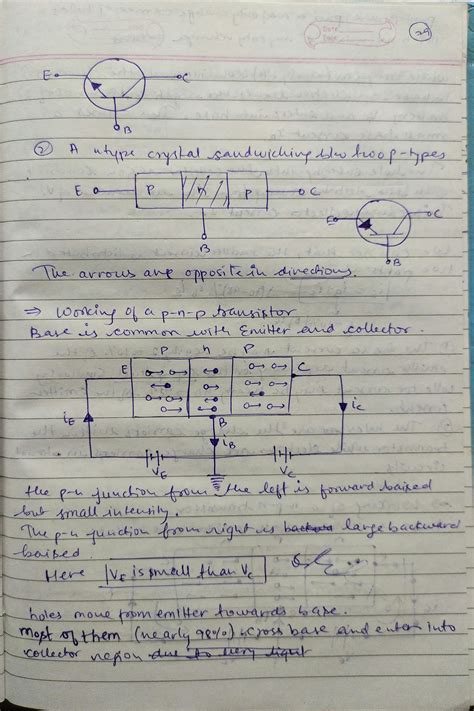 29
E C
B
② A n type crystal sandwiching b/w two p-types
E P n P C
B
E C
B
The arrows are opposite in directions.
⇒ Working of a p-n-p transistor
Base is common with Emitter and collector.
P n P
E C
B
iE iB iC
VE VC
the p-n junction from the left is forward baised
but small intensity.
The p-n junction from right is large backward
baised
Here VE is small than VC
holes move from emitter towards base.
most of them (nearly 98%) cross base and enter into
collector region due to very light